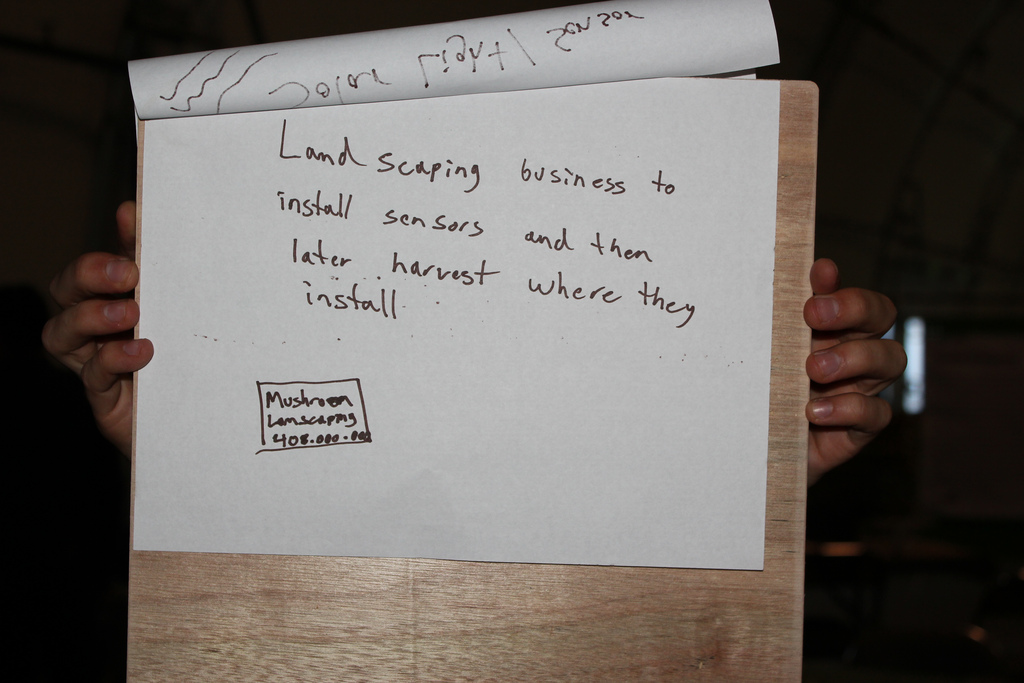 Landscaping business to
install sensors and then
later harvest where they
install
Mushroom
Lanscaping
408.000.000